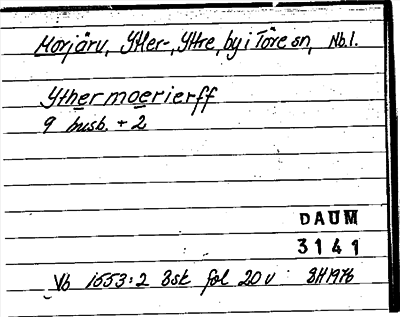 Morjärv, Ytter-, Yttre, by i Töre sn, Nb.l.
Ythermoerierff
9 busb. + 2
DAUM
3141
Vb 1553:2 Bsk fol 20 v SH 1976